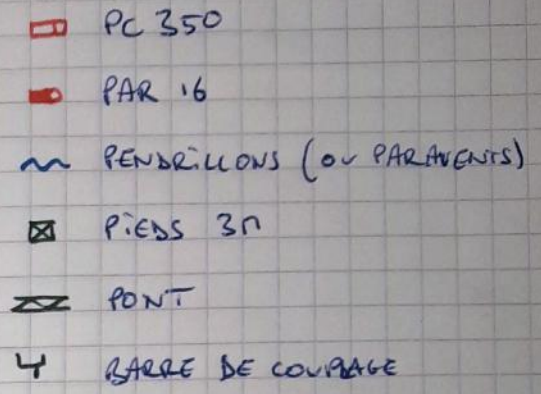 PC 350
PAR 16
PENDRILLONS (OU PARAVENTS)
PIEDS 3M
PONT
BARRE DE COUPLAGE